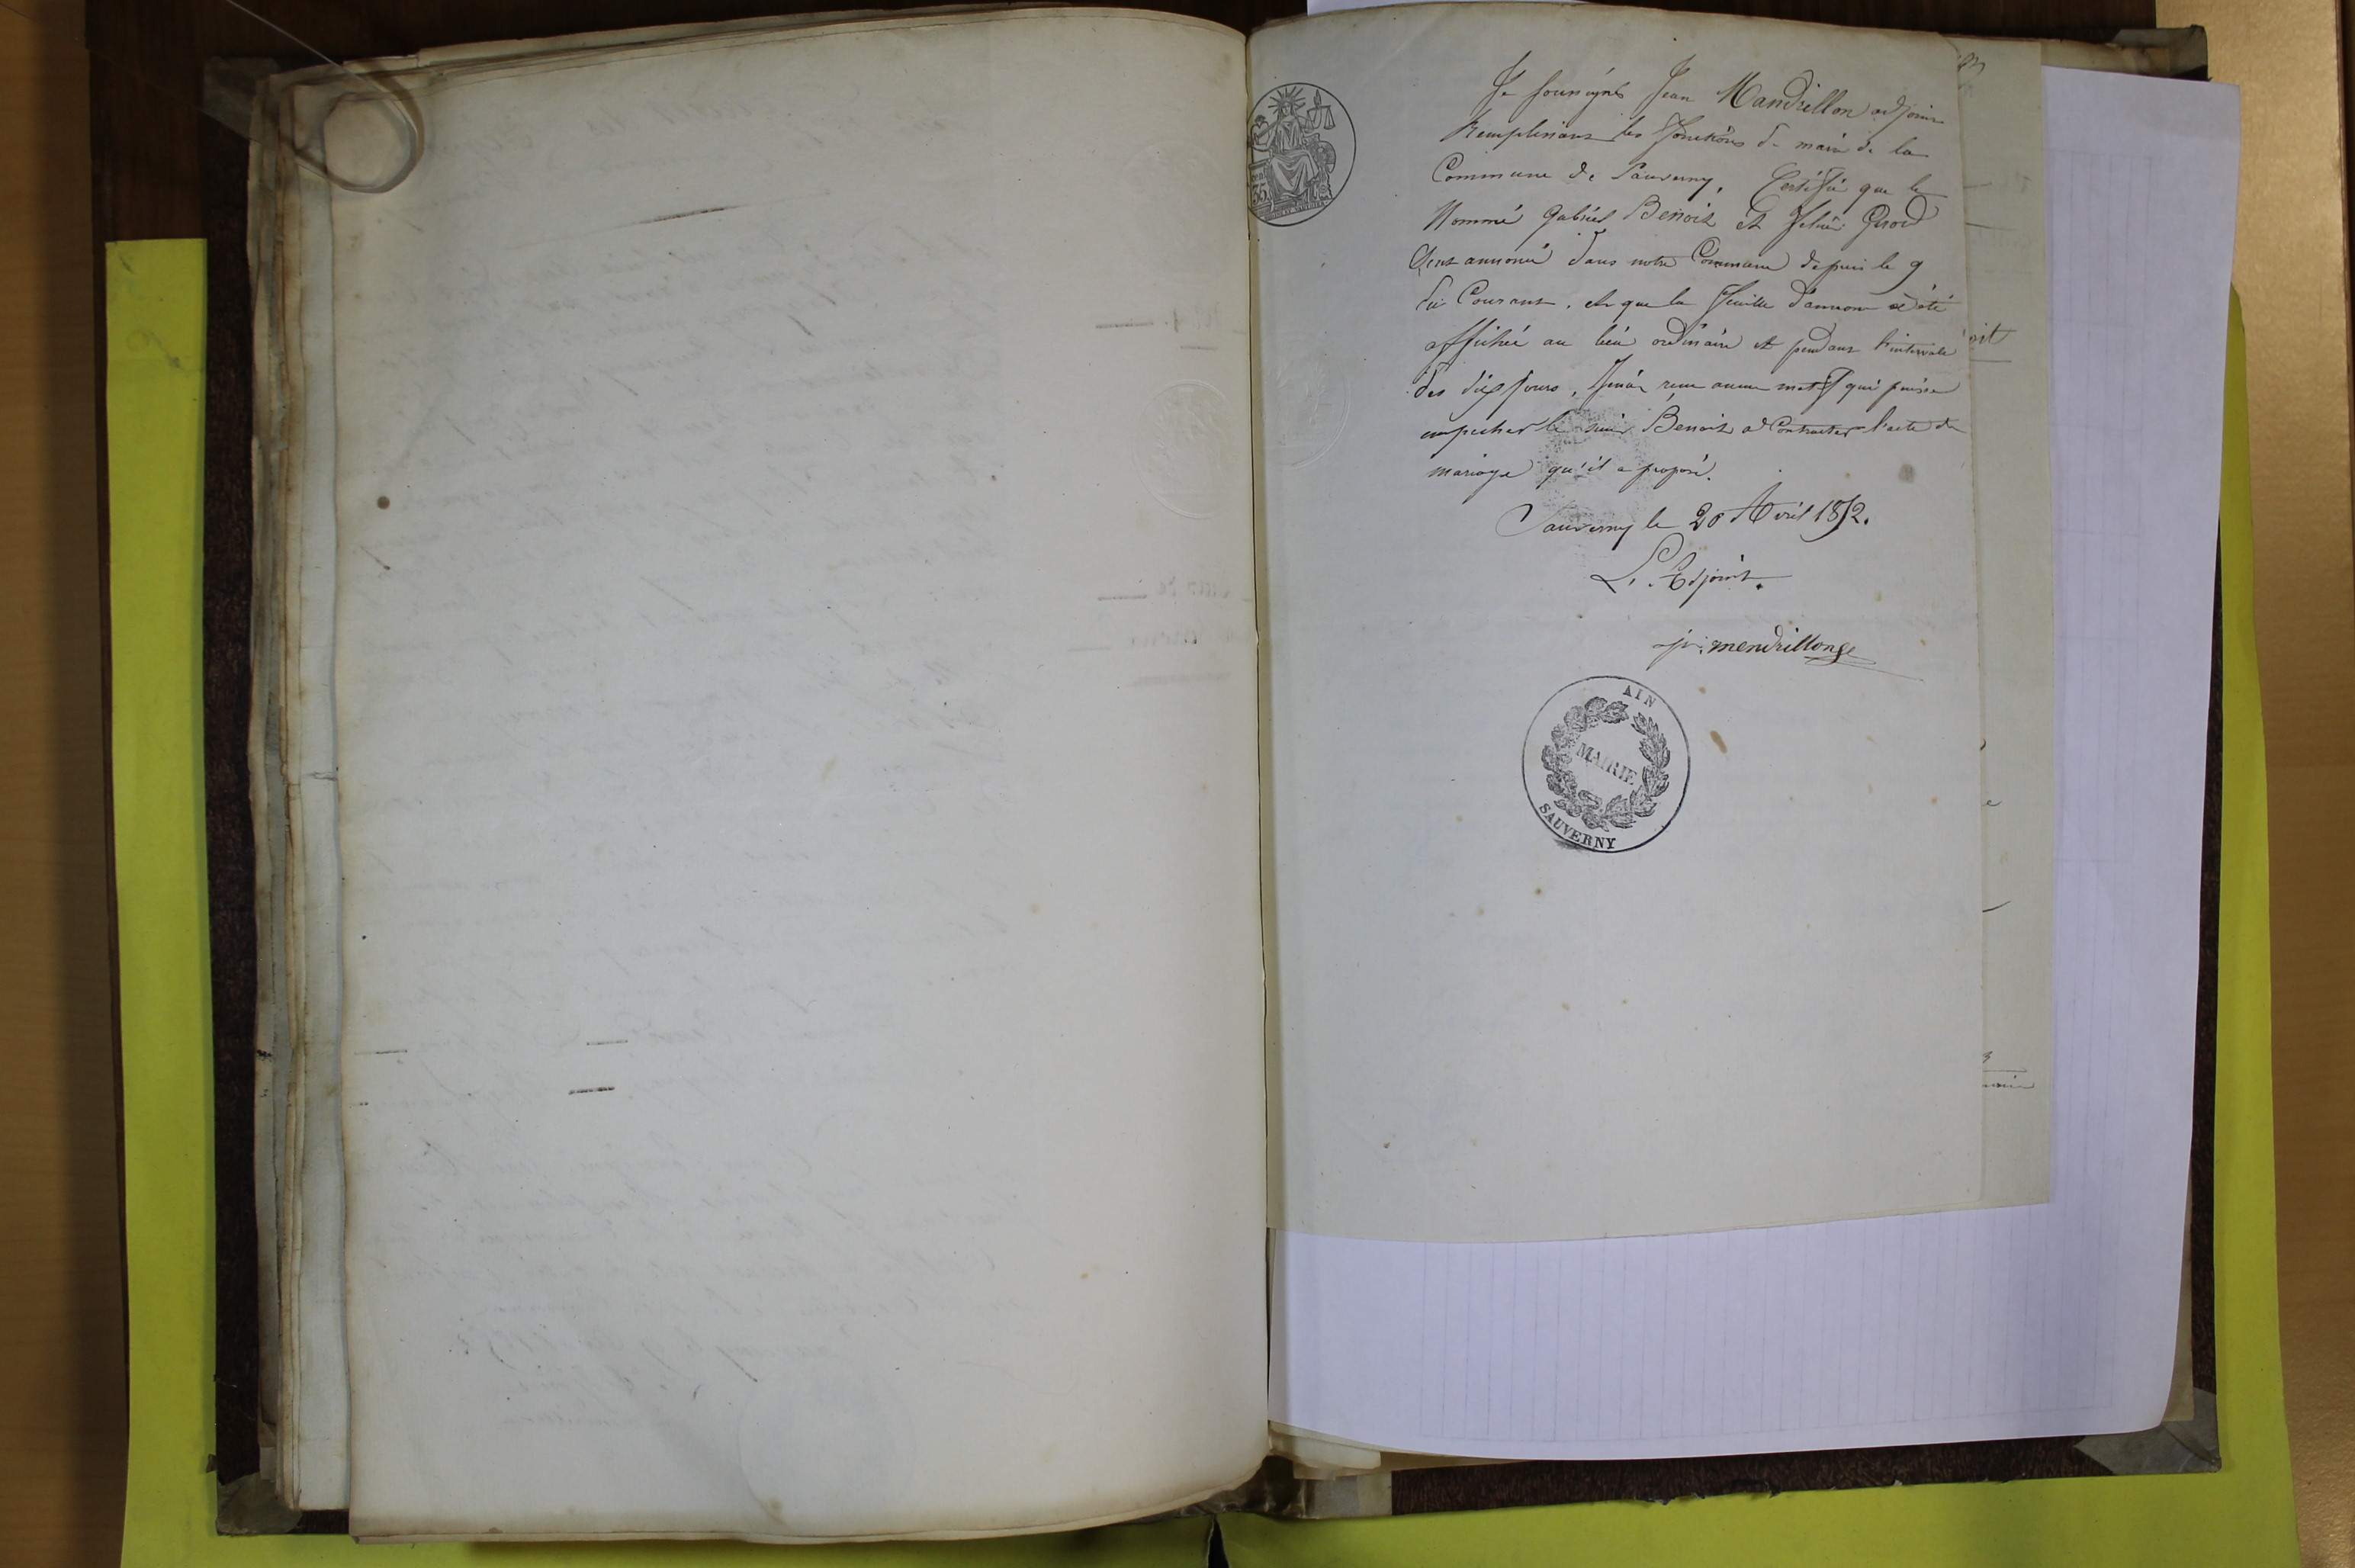 Je soussignés Jean Mandrillon adjoint
Remplissant les fonctions de maire de la
Commune de Sauverny, Certifié que le
Nommé Gabriel Benoit et Girod
annoncé dans notre Commune depuis le 9
du Courant. et que la feuille d'annonce a été
affichée au lieu ordinaire et pendant l'intervale
des dix jours, aucun motif qui puisse
empecher le Benoit a Contracter l'acte de
mariage qu'il a proposé.
Sauverny le 20 Avril 1852.
L'Adjoint.
mendrillong
AIN
MAIRIE
SAUVERNY
35